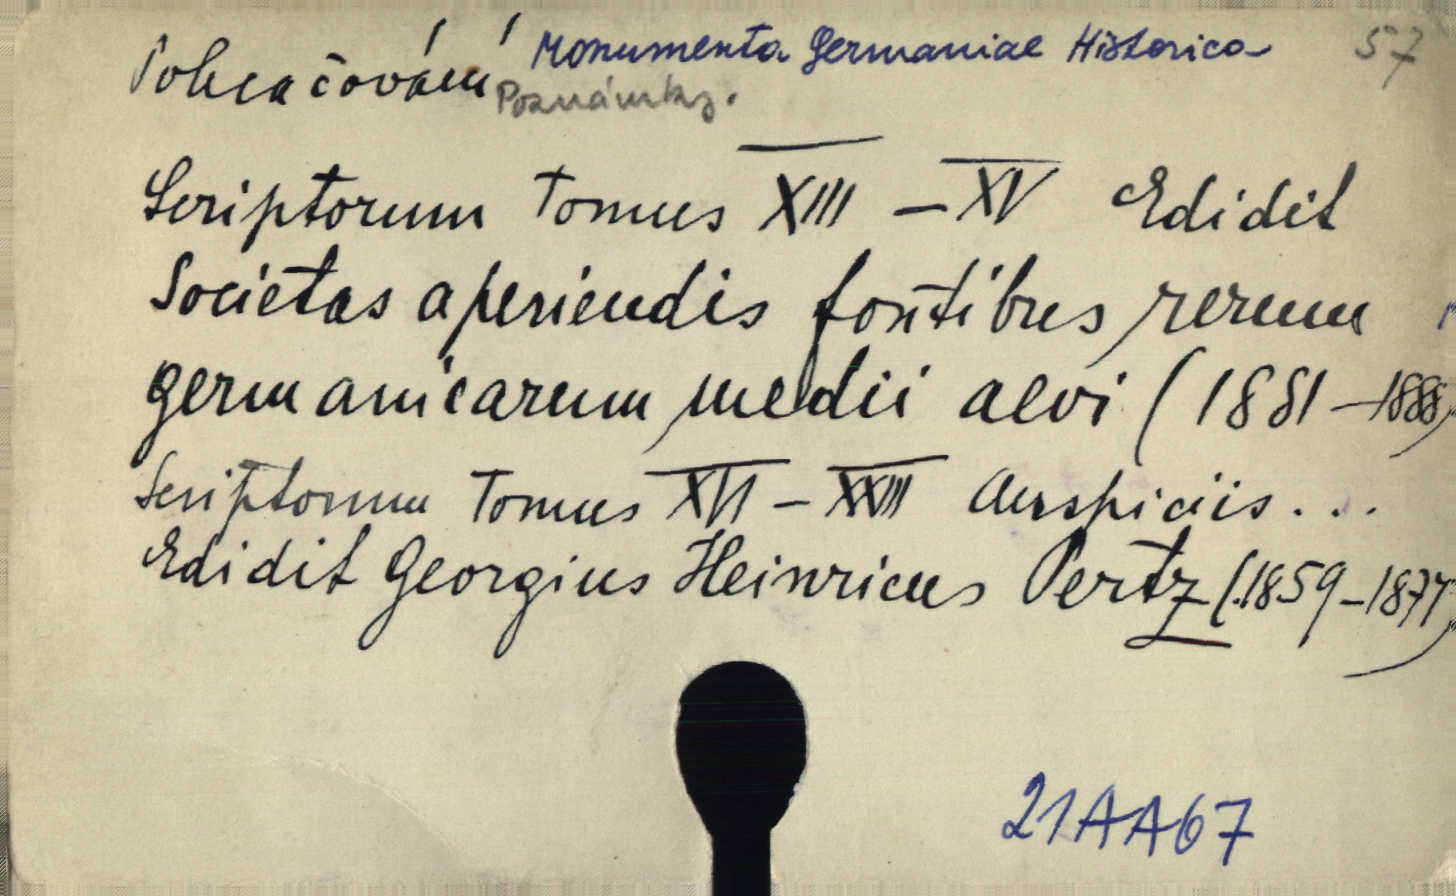 Pokračování Monumenta Germaniae Historica 57
Poznámky.
Scriptorum Tomus XIII – XV Edidit
Societas aperiendis fontibus rerum
germanicarum medii aevi (1881 – 1888)
Scriptorum Tomus XVI – XXIII Auspiciis...
Edidit Georgius Heinricus Pertz (1859 – 1874)
21AA67